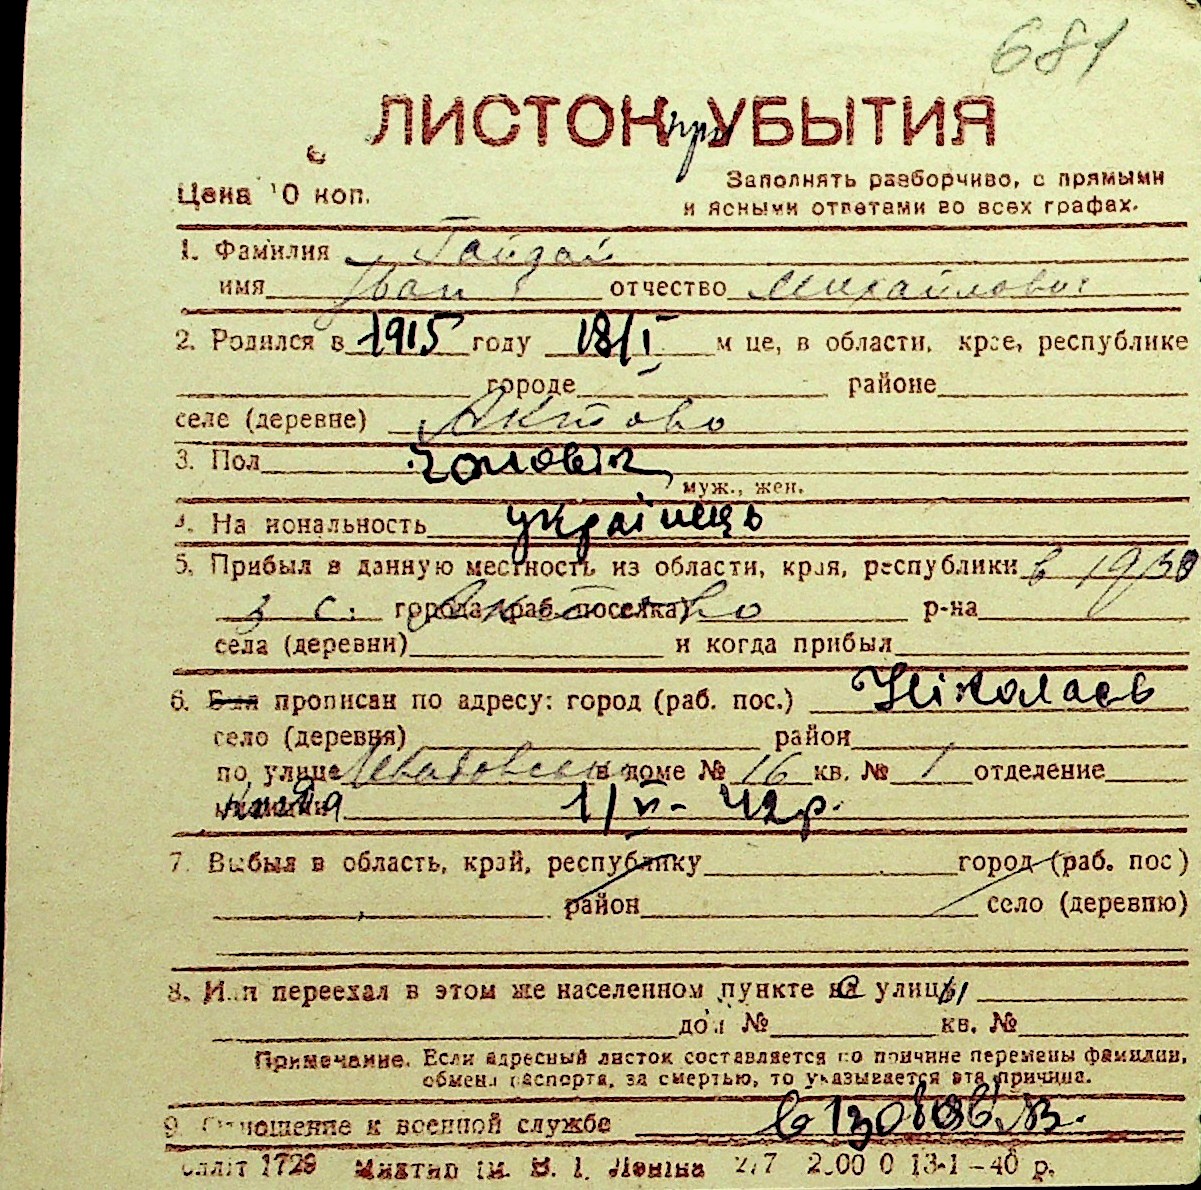 681
ЛИСТОК при УБЫТИЯ
Цена 10 коп.
Заполнять разборчиво, с прямыми
и ясными ответами во всех графах.
1. Фамилия Гайдай
имя Іван отчество Михайлович
2. Родился в 1915 году 18/I м це, в области, крае, республике
городе районе
селе (деревне) Актово
3. Пол чоловік
муж., жен.
4. На иональность українець
5. Прибыл в данную местность из области, края, республики в 1930
з с. города (раб. поселка) Актово р-на
села (деревни) и когда прибыл
6. Был прописан по адресу: город (раб. пос.) Ніколаєв
село (деревня) район
по улице в доме № 16 кв. № 1 отделение
милиции 1/VI- 42 р.
7. Выбыл в область, край, республику город (раб. пос)
район село (деревню)
8. Или переехал в этом же населенном пункте на улицы
дом № кв. №
Примечание. Если адресный листок составляется по причине перемены фамилии,
обмена паспорта, за смертью, то указывается эта причина.
9. Отношение к военной службе
1729 Миктип ім. В. І. Леніна 2.00 0 13-1-40 р.